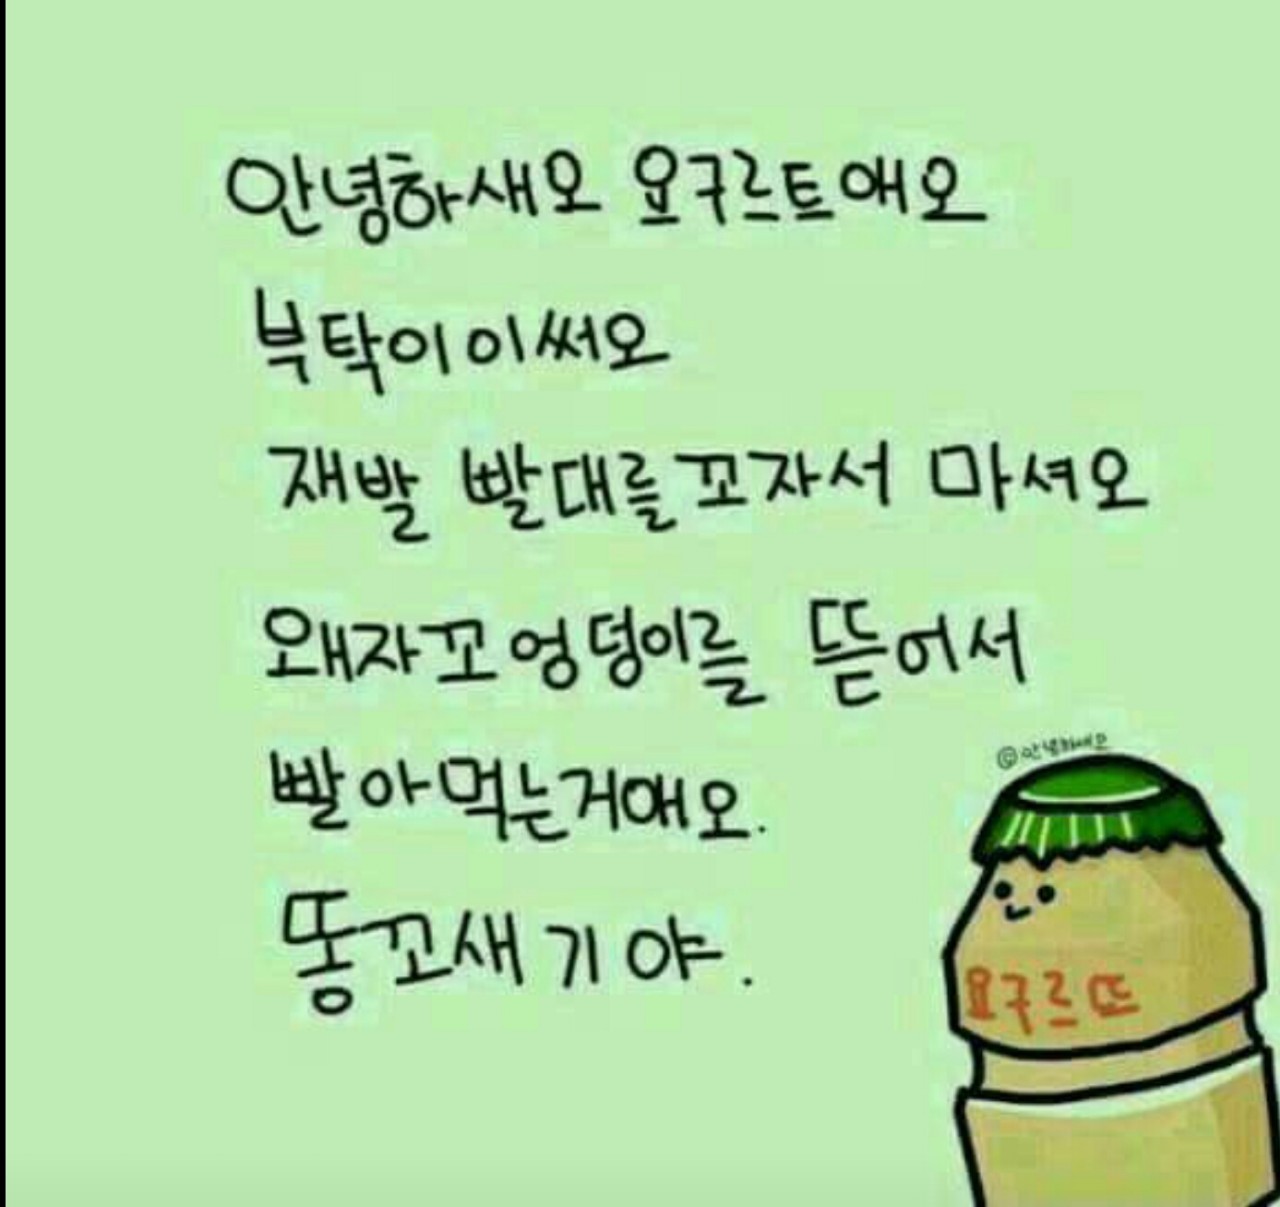 안녕하새오 요구르트애오
부탁이이써오
재발 빨대를꼬자서 마셔오
왜자꼬엉덩이를 뜯어서
빨아먹는거애오.
똥꼬새기야.
@안녕하새오
요구르뜨